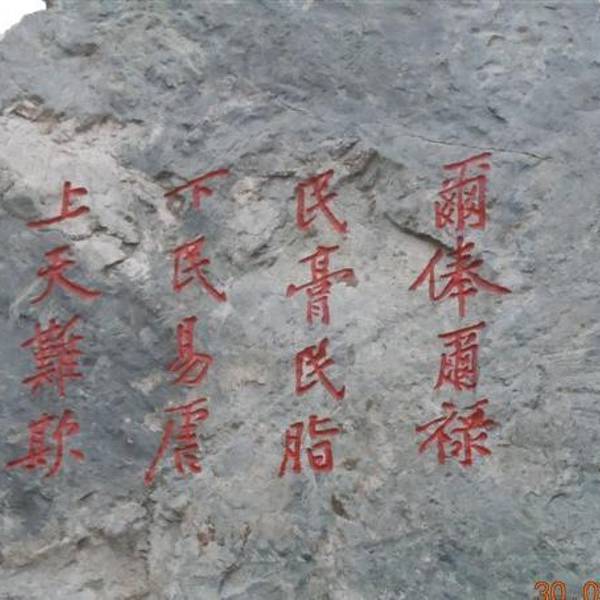 爾俸爾祿
民膏民脂
下民易虐
上天難欺
30.0